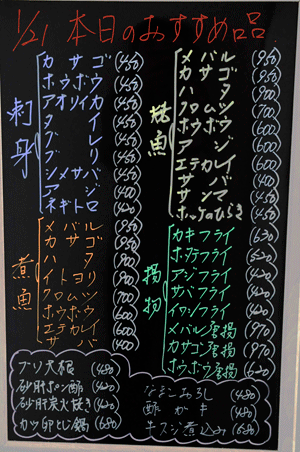 1/21 本日のおすすめ品
刺身
カサゴ (450)
ホウボウ (450)
アオリイカ (450)
タイ (450)
ブリ (450)
シメサバ (450)
アジ (400)
ネギトロ (420)
煮魚
メバル (950)
カサゴ (950)
ハタ (900)
イトヨリ (900)
クロムツ (700)
ホウボウ (600)
エテカレイ (600)
サバ (400)
ブリ大根 (480)
砂肝ポン酢 (420)
砂肝炭火焼き (420)
カツ卵とじ鍋 (680)
焼魚
メバル (950)
カサゴ (950)
ハタ (900)
クロムツ (700)
ホウボウ (600)
アジ (600)
エテカレイ (600)
サバ (400)
サンマ (450)
ホッケのひらき (450)
揚物
カキフライ (630)
ホタテフライ (620)
アジフライ (420)
サバフライ (420)
イワシフライ (420)
メバル唐揚 (970)
カサゴ唐揚 (970)
ホウボウ唐揚 (620)
なまこおろし (480)
酢がき (480)
牛スジ煮込み (680)